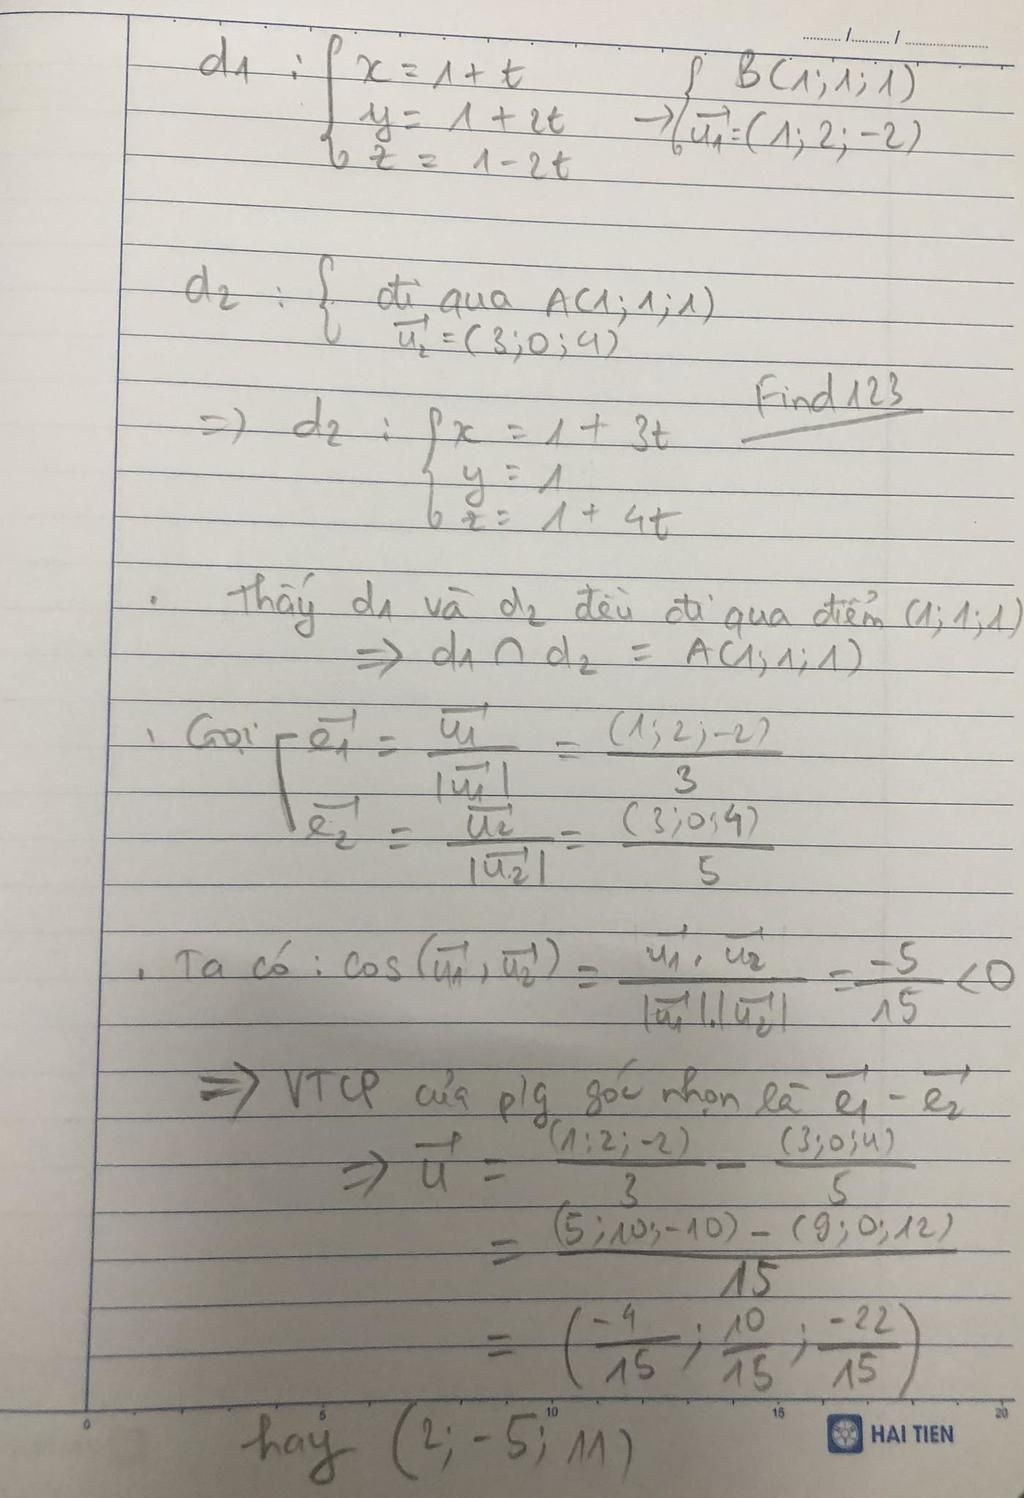 ....... / ....... / ...............
d1 : { x = 1 + t
y = 1 + 2t
z = 1 - 2t
→ { B(1;1;1)
u1 = (1; 2; -2)
d2 : { đi qua A(1;1;1)
u2 = (3;0;4)
Find 123
=> d2 : { x = 1 + 3t
y = 1
z = 1 + 4t
. Thấy d1 và d2 đều đi qua điểm (1;1;1)
=> d1 ∩ d2 = A(1;1;1)
. Gọi e1 = u1 / |u1| = (1;2;-2) / 3
e2 = u2 / |u2| = (3;0;4) / 5
. Ta có : cos(u1, u2) = u1 . u2 / |u1|.|u2| = -5 / 15 < 0
=> VTCP của p/g góc nhọn là e1 - e2
=> u = (1;2;-2) / 3 - (3;0;4) / 5
= (5;10;-10) - (9;0;12) / 15
= (-4/15 ; 10/15 ; -22/15)
0 5 10 15 20
hay (2; -5; 11)
HAI TIEN